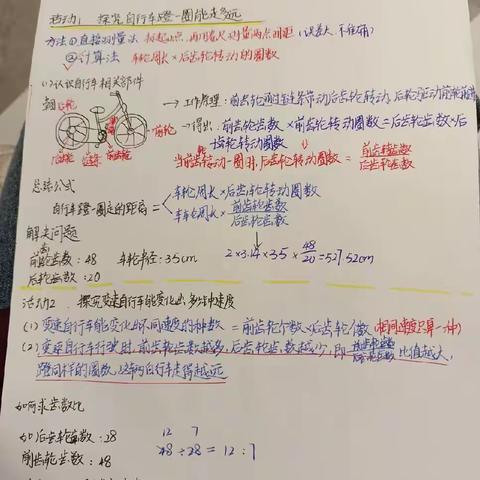 活动1 探究自行车蹬一圈能走多远
方法①直接测量法 标起止点,再用卷尺测量两点间距(误差大,不准确)
②计算法 车轮周长×后齿轮转动的圈数
(1)认识自行车相关部件
后轮
→工作原理:前齿轮通过链条带动后齿轮转动,后轮驱动前轮前进
前轮
→得出:前齿轮齿数×前齿轮转动圈数=后齿轮齿数×后
齿轮转动圈数
后齿轮 链条 前齿轮
当前齿轮转动一圈时,后齿轮转动圈数=前齿轮齿数/后齿轮齿数
总结公式
自行车蹬一圈走的距离=
车轮周长×后齿轮转动圈数
车轮周长×前齿轮齿数/后齿轮齿数
解决问题
前齿轮齿数:48 车轮半径:35cm
2×3.14×35×48/20=527.52cm
后轮齿数:20
活动2 探究变速自行车能变化出多少种速度
(1)变速自行车能变化出不同速度的种数=前齿轮个数×后齿轮个数(相同速度只算一种)
(2)变速自行车行驶时,前齿轮齿数越多,后齿轮齿数越少,即前齿轮齿数/后齿轮齿数比值越大,
蹬同样的圈数,这辆自行车走得越远
如何求齿数比
如后齿轮齿数:28
12 7
前齿轮齿数:48
48÷28=12:7